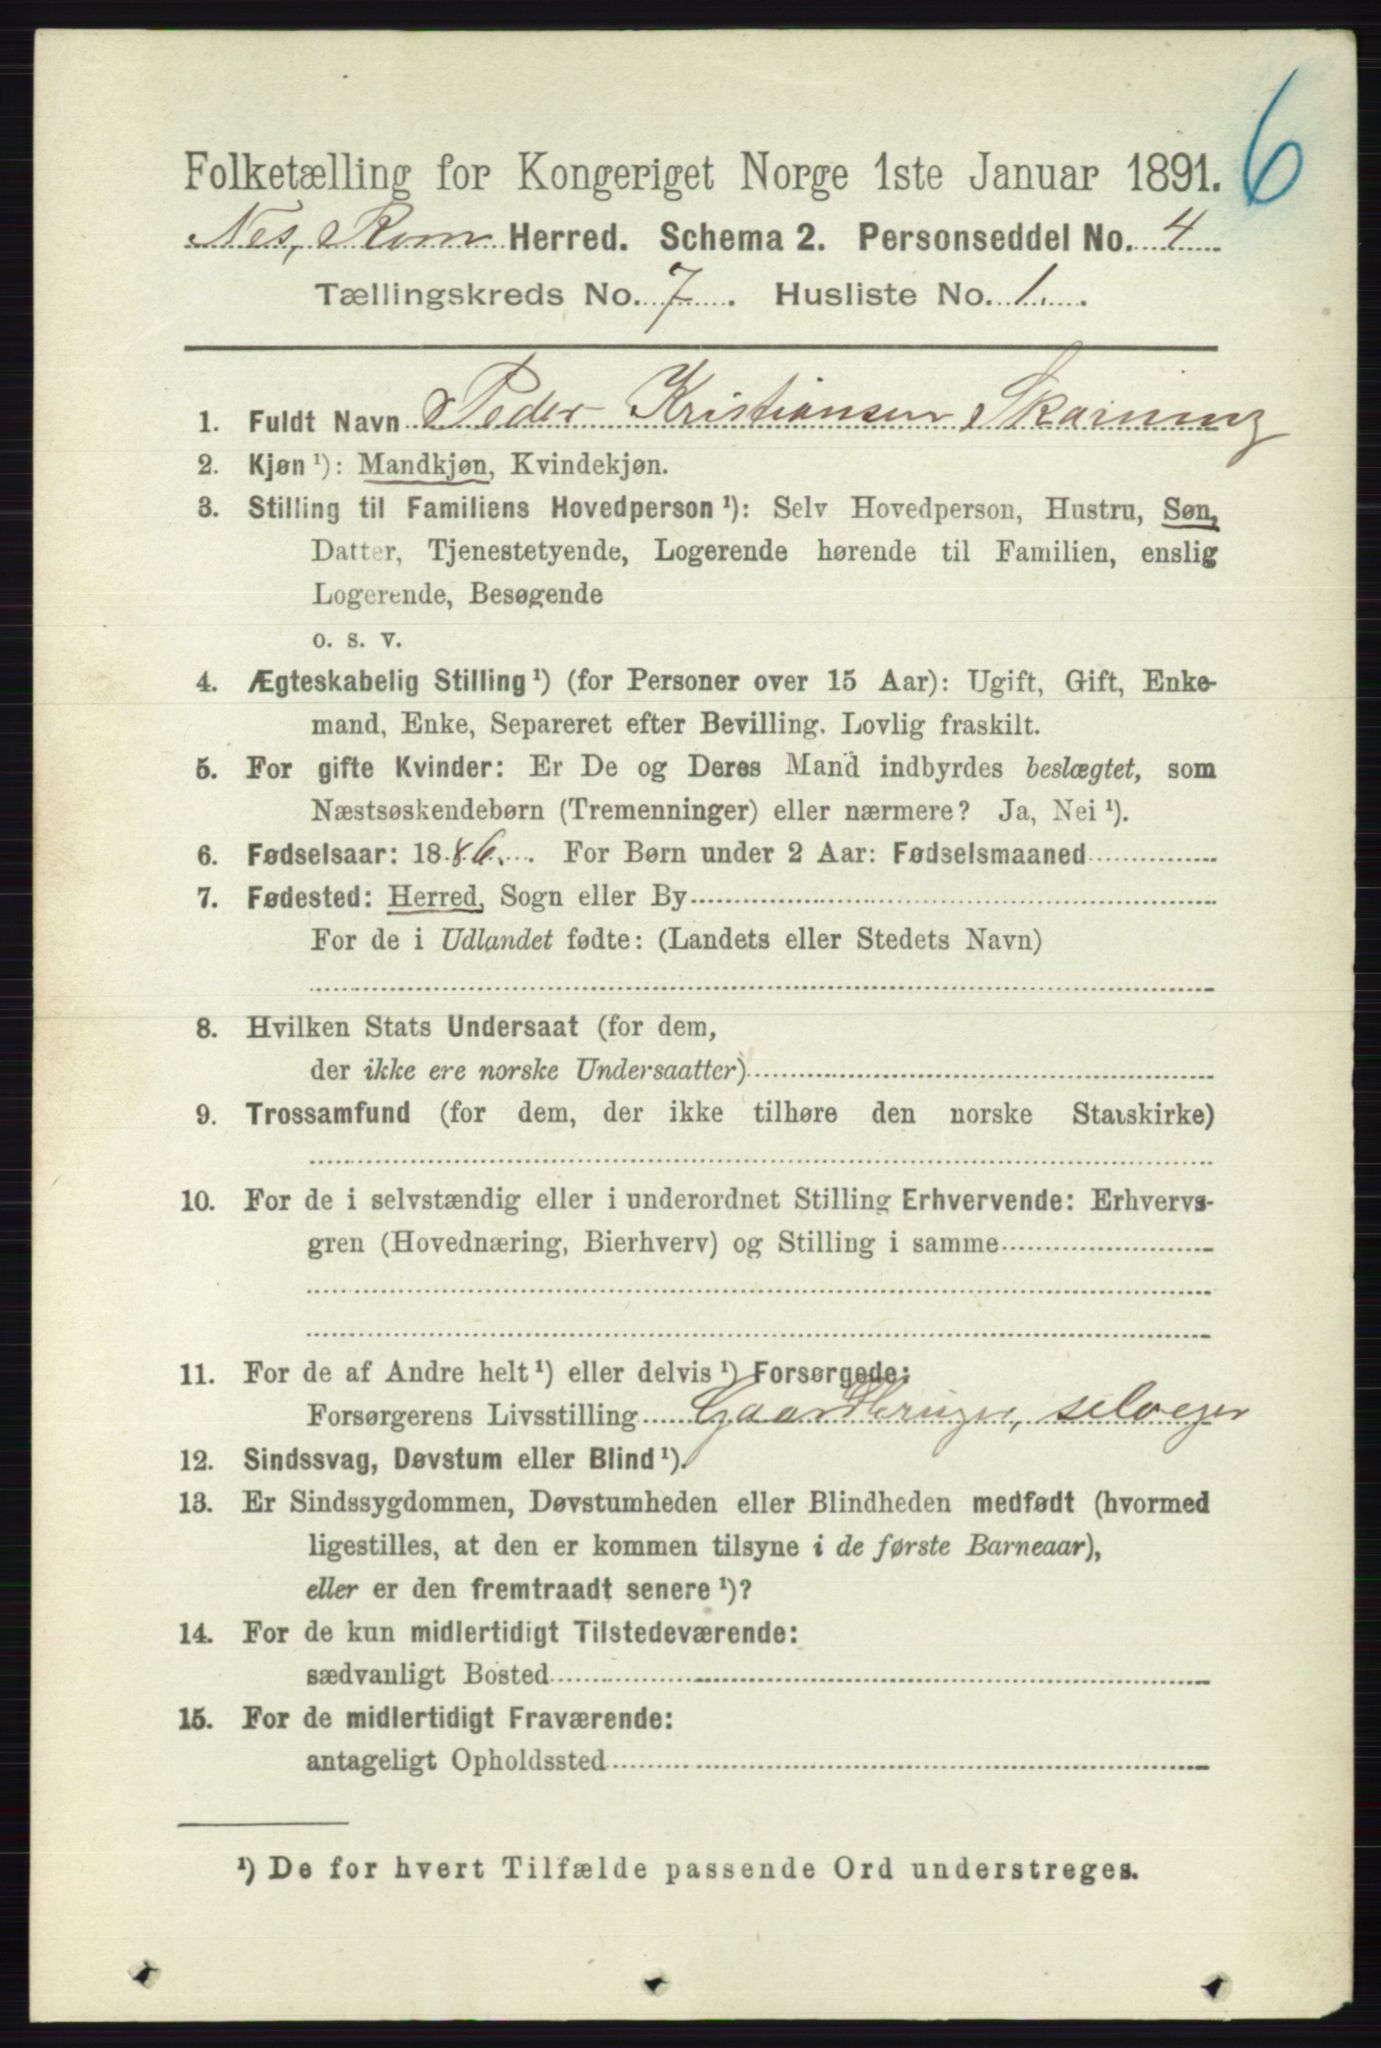 6
Folketælling for Kongeriget Norge 1ste Januar 1891.
Nes, Rom Herred. Schema 2. Personseddel No. 4
Tællingskreds No. 7. Husliste No. 1.
1. Fuldt Navn Peder Kristiansen Skarning
2. Kjøn ¹): Mandkjøn, Kvindekjøn.
3. Stilling til Familiens Hovedperson ¹): Selv Hovedperson, Hustru, Søn,
Datter, Tjenestetyende, Logerende hørende til Familien, enslig
Logerende, Besøgende
o. s. v.
4. Ægteskabelig Stilling ¹) (for Personer over 15 Aar): Ugift, Gift, Enke-
mand, Enke, Separeret efter Bevilling. Lovlig fraskilt.
5. For gifte Kvinder: Er De og Deres Mand indbyrdes beslægtet, som
Næstsøskendebørn (Tremenninger) eller nærmere? Ja, Nei ¹).
6. Fødselsaar: 1886. For Børn under 2 Aar: Fødselsmaaned
7. Fødested: Herred, Sogn eller By
For de i Udlandet fødte: (Landets eller Stedets Navn)
8. Hvilken Stats Undersaat (for dem,
der ikke ere norske Undersaatter)
9. Trossamfund (for dem, der ikke tilhøre den norske Statskirke)
10. For de i selvstændig eller i underordnet Stilling Erhvervende: Erhvervs-
gren (Hovednæring, Bierhverv) og Stilling i samme
11. For de af Andre helt ¹) eller delvis ¹) Forsørgede:
Forsørgerens Livsstilling Gaardbruger, selveier
12. Sindssvag, Døvstum eller Blind ¹).
13. Er Sindssygdommen, Døvstumheden eller Blindheden medfødt (hvormed
ligestilles, at den er kommen tilsyne i de første Barneaar),
eller er den fremtraadt senere ¹)?
14. For de kun midlertidigt Tilstedeværende:
sædvanligt Bosted
15. For de midlertidigt Fraværende:
antageligt Opholdssted
¹) De for hvert Tilfælde passende Ord understreges.